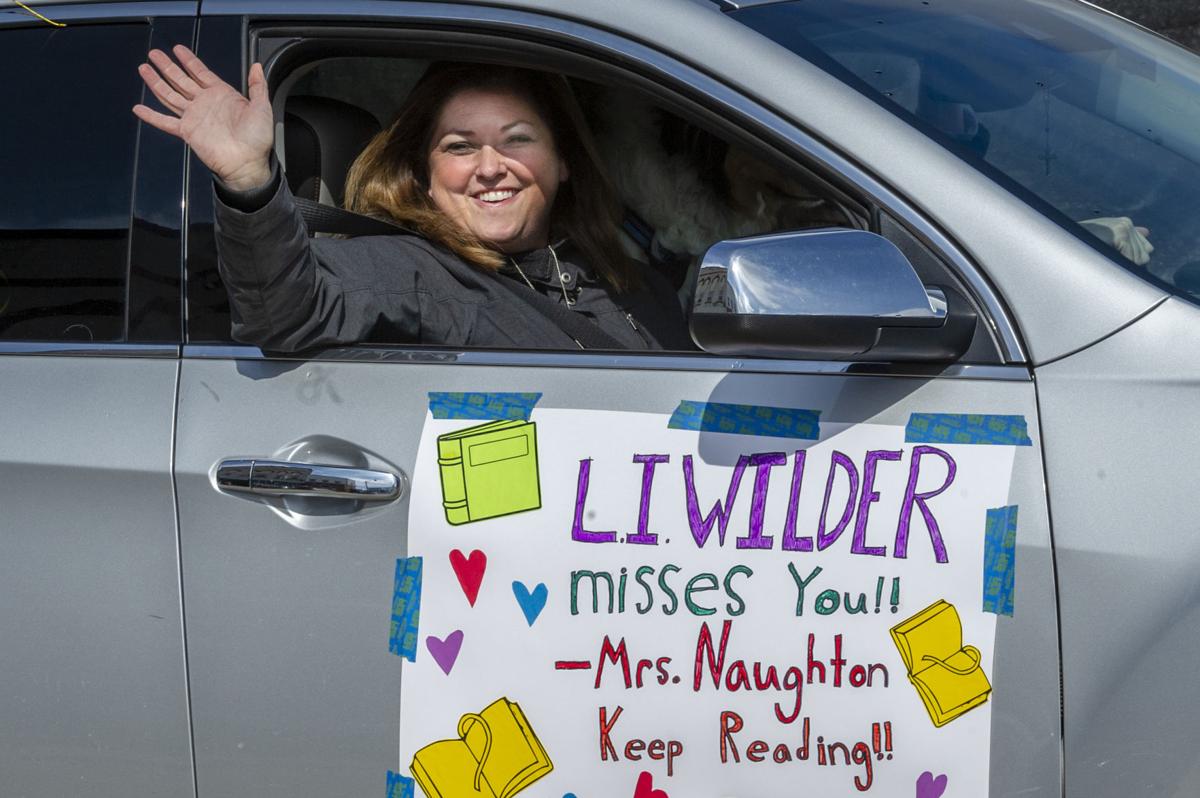 L.I. WILDER
misses You!!
—Mrs. Naughton
Keep Reading!!